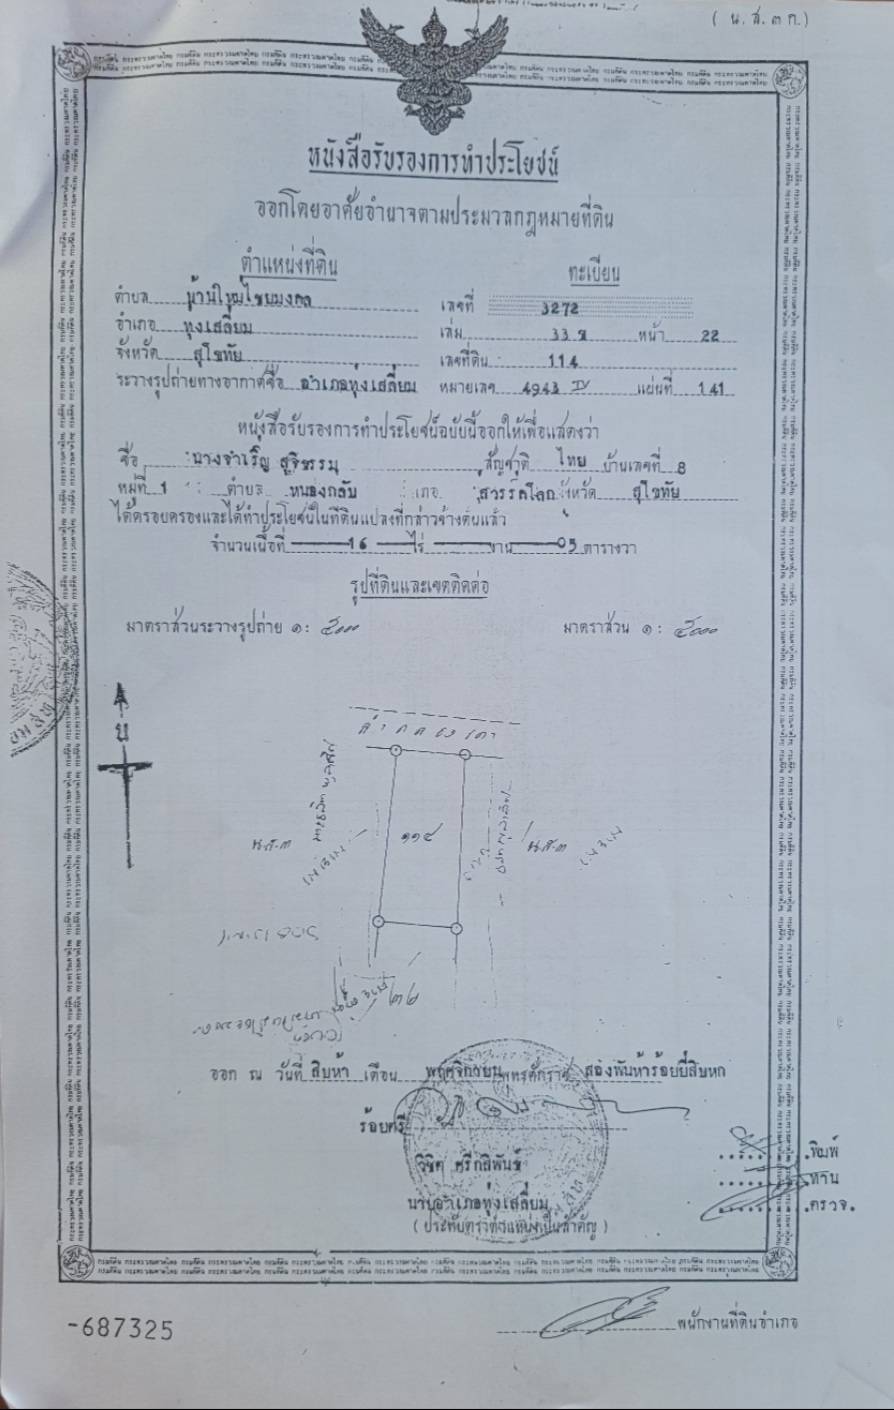 ( น.ส.๓ ก.)
หนังสือรับรองการทำประโยชน์
ออกโดยอาศัยอำนาจตามประมวลกฎหมายที่ดิน
ตำแหน่งที่ดิน ทะเบียน
ตำบล บ้านใหม่ไชยมงคล เลขที่ 3272
อำเภอ ทุ่งเสลี่ยม เล่ม 33 ข หน้า 22
จังหวัด สุโขทัย เลขที่ดิน 114
ระวางรูปถ่ายทางอากาศชื่อ อำเภอทุ่งเสลี่ยม หมายเลข 4943 IV แผ่นที่ 141
หนังสือรับรองการทำประโยชน์ฉบับนี้ออกให้เพื่อแสดงว่า
ชื่อ นางจำเริญ สุจิธรรม สัญชาติ ไทย บ้านเลขที่ 8
หมู่ที่ 1 ตำบล หนองกลับ เภอ สวรรคโลก จังหวัด สุโขทัย
ได้ครอบครองและได้ทำประโยชน์ในที่ดินแปลงที่กล่าวข้างต้นแล้ว
จำนวนเนื้อที่ 16 ไร่ งาน 05 ตารางวา
รูปที่ดินและเขตติดต่อ
มาตราส่วนระวางรูปถ่าย ๑ : ๕๐๐๐ มาตราส่วน ๑ : ๕๐๐๐
น
น.ส.๓ ๑๑๔ น.ส.๓
ออก ณ วันที่ สิบห้า เดือน พฤศจิกายน พุทธศักราช สองพันห้าร้อยยี่สิบหก
ร้อยตรี
วิจิต ศรีกสิพันธ์
นายอำเภอทุ่งเสลี่ยม
( ประทับตราตำแหน่งเป็นสำคัญ )
พิมพ์
ทาน
ตรวจ.
พนักงานที่ดินอำเภอ
-687325